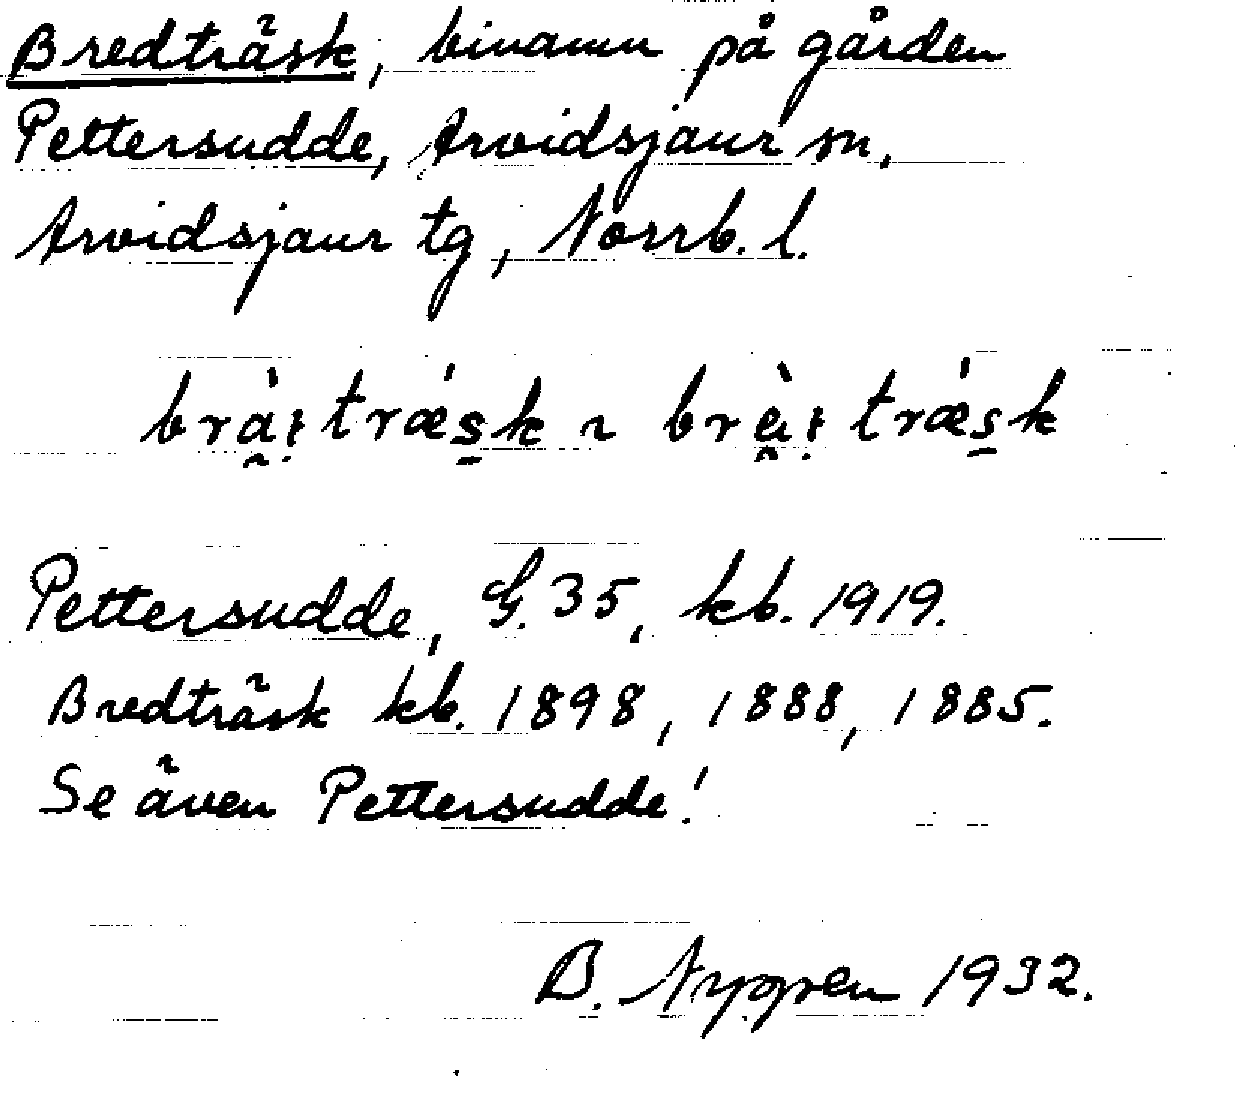 Bredträsk, binamn på gården
Pettersudde, Arvidsjaur sn,
Arvidsjaur tg, Norrb. l.
brà̰ṭtræ´s̱k ~ brὲ̰ṭtræ´s̱k
Pettersudde, G. 35, kb. 1919.
Bredträsk kb. 1898, 1888, 1885.
Se även Pettersudde!
B. Nygren 1932.